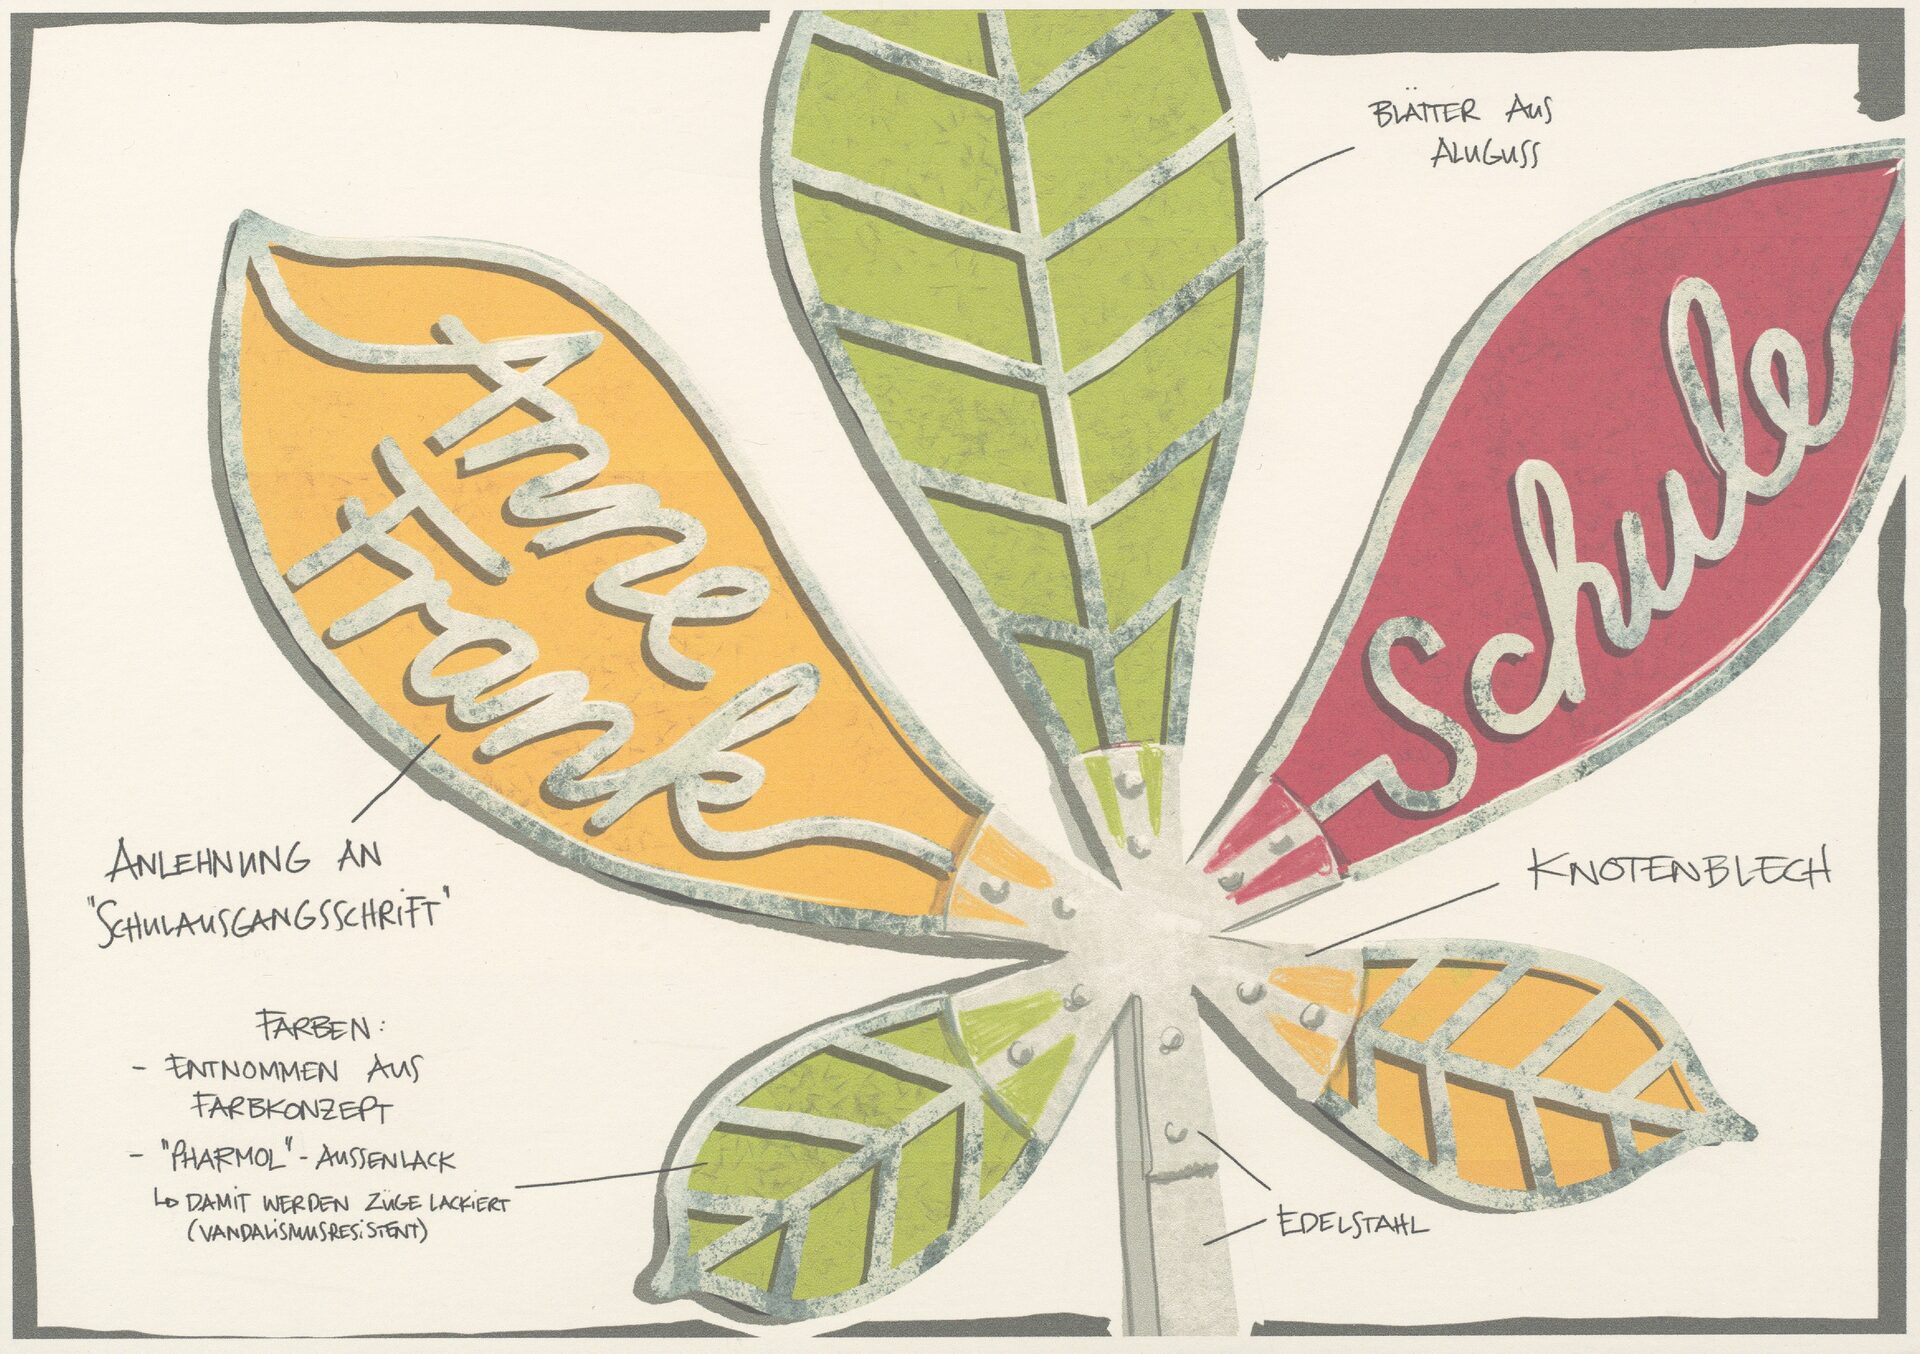 BLÄTTER AUS
ALUGUSS
Anne
Frank
Schule
ANLEHNUNG AN
"SCHULAUSGANGSSCHRIFT"
KNOTENBLECH
FARBEN:
- ENTNOMMEN AUS
FARBKONZEPT
- "PHARMOL" - AUSSENLACK
↳ DAMIT WERDEN ZÜGE LACKIERT
(VANDALISMUSRESISTENT)
EDELSTAHL